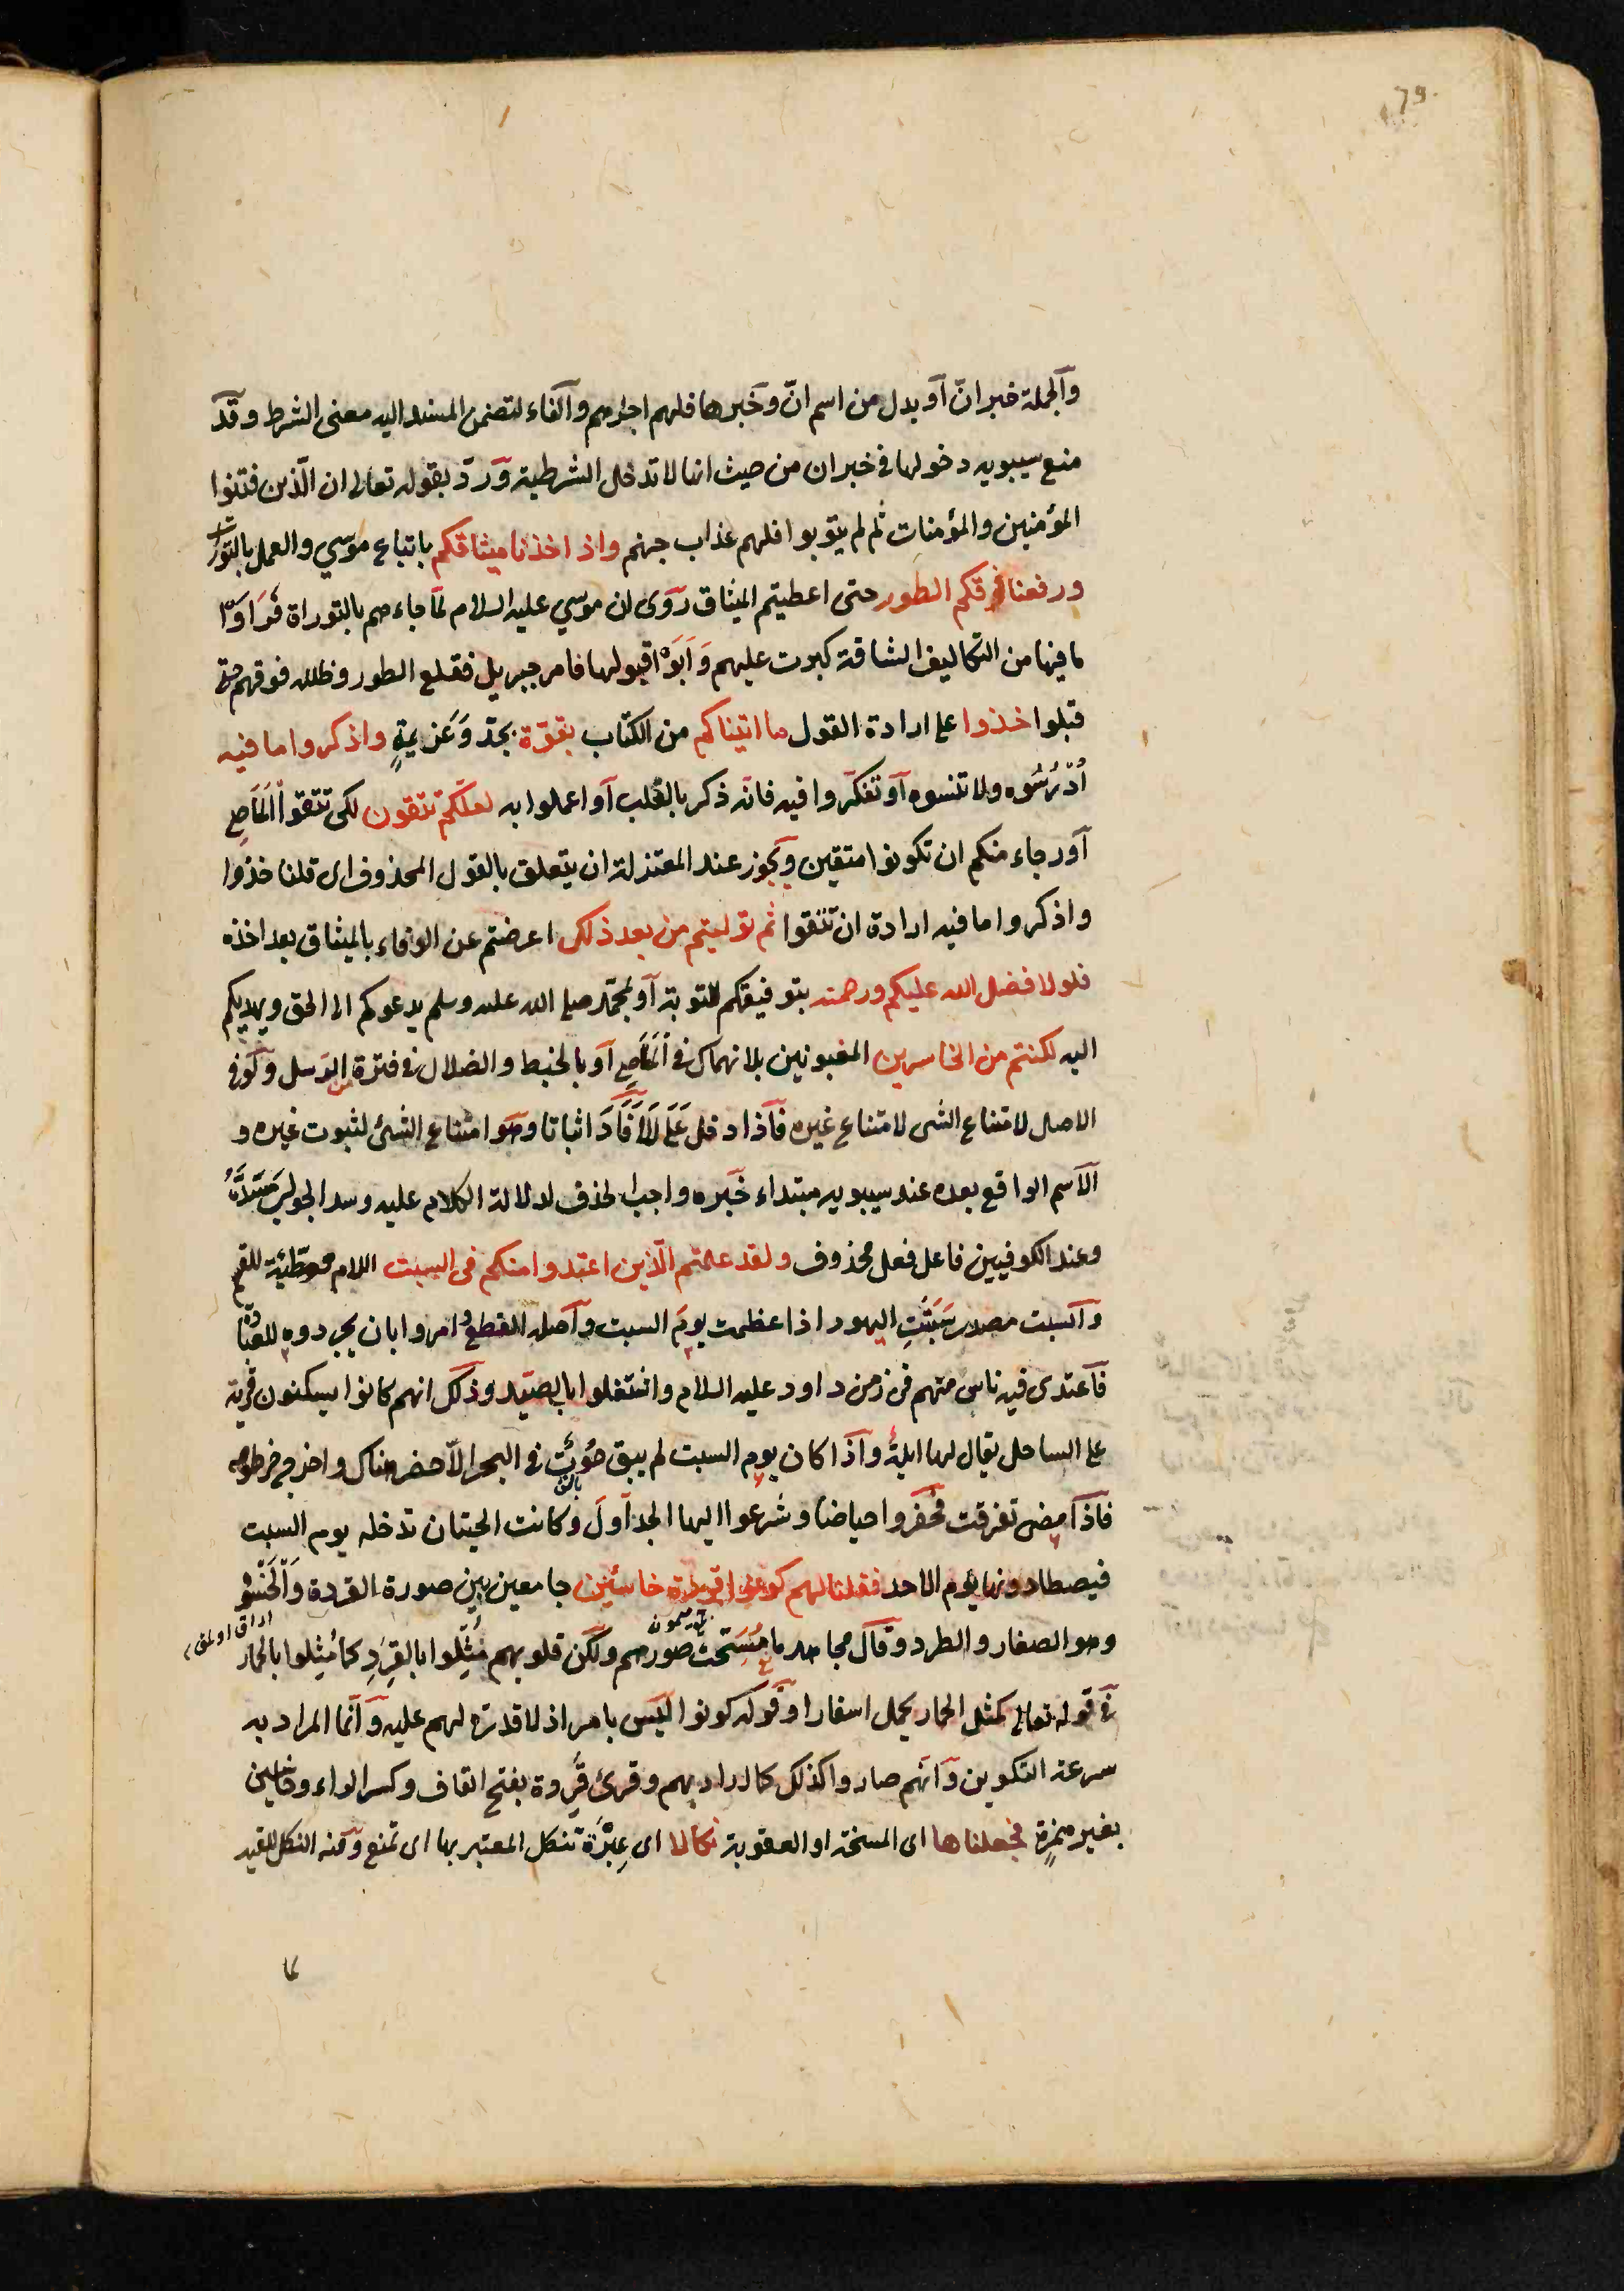 79
والجملة خبر انّ او بدل من اسم انّ وخبرها فلهم اجرهم والفاء لتضمن المسند اليه معنى الشرط وقد
منع سيبويه دخولها في خبر ان من حيث انها لا تدخل الشرطية ورد بقوله تعالى ان الّذين فتنوا
المؤمنين والمؤمنات ثم لم يتوبوا فلهم عذاب جهنم واذ اخذنا ميثاقكم باتباع موسي والعمل بالتوراة
ورفعنا فوقكم الطور حتى اعطيتم الميثاق روى ان موسي عليه السلام لمّا جاءهم بالتوراة فَرَاَوْا
ما فيها من التكاليف الشاقة كبرت عليهم وَاَبَوْا قبولها فامر جبريل فقلع الطور وظلله فوقهم حتى
قبلوا خذوا على ارادة القول ما اتيناكم من الكتاب بقوّة بجدّ وَعَزيمةٍ واذكروا ما فيه
اُدْرُسُوه ولا تنسوه او تفكّروا فيه فانه ذكر بالقلب او اعملوا به لعلّكم تتقون لكى تتقوا المَعَاصِي
او رجاء منكم ان تكونوا متقين ويجوز عند المعتزلة ان يتعلق بالقول المحذوف اى قلنا خذوا
واذكروا ما فيه ارادة ان تتقوا ثم توليتم من بعد ذلك اعرضتم عن الوفاء بالميثاق بعد اخذه
فلولا فضل الله عليكم ورحمته بتوفيقكم للتوبة او بمحمّد صلى الله عليه وسلم يدعوكم الى الحق ويهديكم
اليه لكنتم من الخاسرين المغبونين بالانهماك في المَعَاصِي او بالخبط والضلال في فترة من الرسل ولو في
الاصل لامتناع الشى لامتناع غيره فاذا دخل عَلَى لَا اَفَادَ اثباتا وهو امتناع الشئ لثبوت غيره و
الاسم الواقع بعده عند سيبويه مبتداء خبره واجب الحذف لدلالة الكلام عليه وسد الجواب مَسَدَّهُ
وعند الكوفيين فاعل فعل محذوف ولقد علمتم الّذين اعتدوا منكم فى السبت اللام موطّئة للقسم
والسبت مصدر سَبَتَتِ اليهود اذا عظمت يومَ السبت واصله القطع امروا بان يجردوه للعبادة
فاعتدى فيه ناس منهم في زمن داود عليه السلام واشتغلوا بالصيد وذلك انهم كانوا يسكنون قرية
على الساحل يقال لها ايلة واذا كان يوم السبت لم يبق حُوْتٌ في البحر الاّ حضر هناك واخرج خرطومه
فاذا مضى تفرقت فحفروا حياضًا وشرعوا اليها الجداولَ وكانت الحيتان تدخله يوم السبت
فيصطادونها يوم الاحد فقلنا لهم كونوا قردة خاسئين جامعين بين صورة القردة والخسُؤ
وهو الصغار والطرد وقال مجاهد ما مُسِخَتْ صورهم ولكن قلوبهم مُثِّلوا بالقِرَدِ كما مُثِلوا بالحمار
في قوله تعالى كمثل الحمار يحمل اسفارا وقوله كونوا ليس بامر اذ لا قدرة لهم عليه وانّما المراد به
سرعة التكوين وانهم صاروا كذلك كما اراد بهم وقرئ قَرِدة بفتح القاف وكسر الراء وخاسين
بغير همزة فجعلناها اى المسخة او العقوبة نكالا اى عِبْرَة تنكل المعتبر بها اى تمنع ومنه النكل للقيد
لما